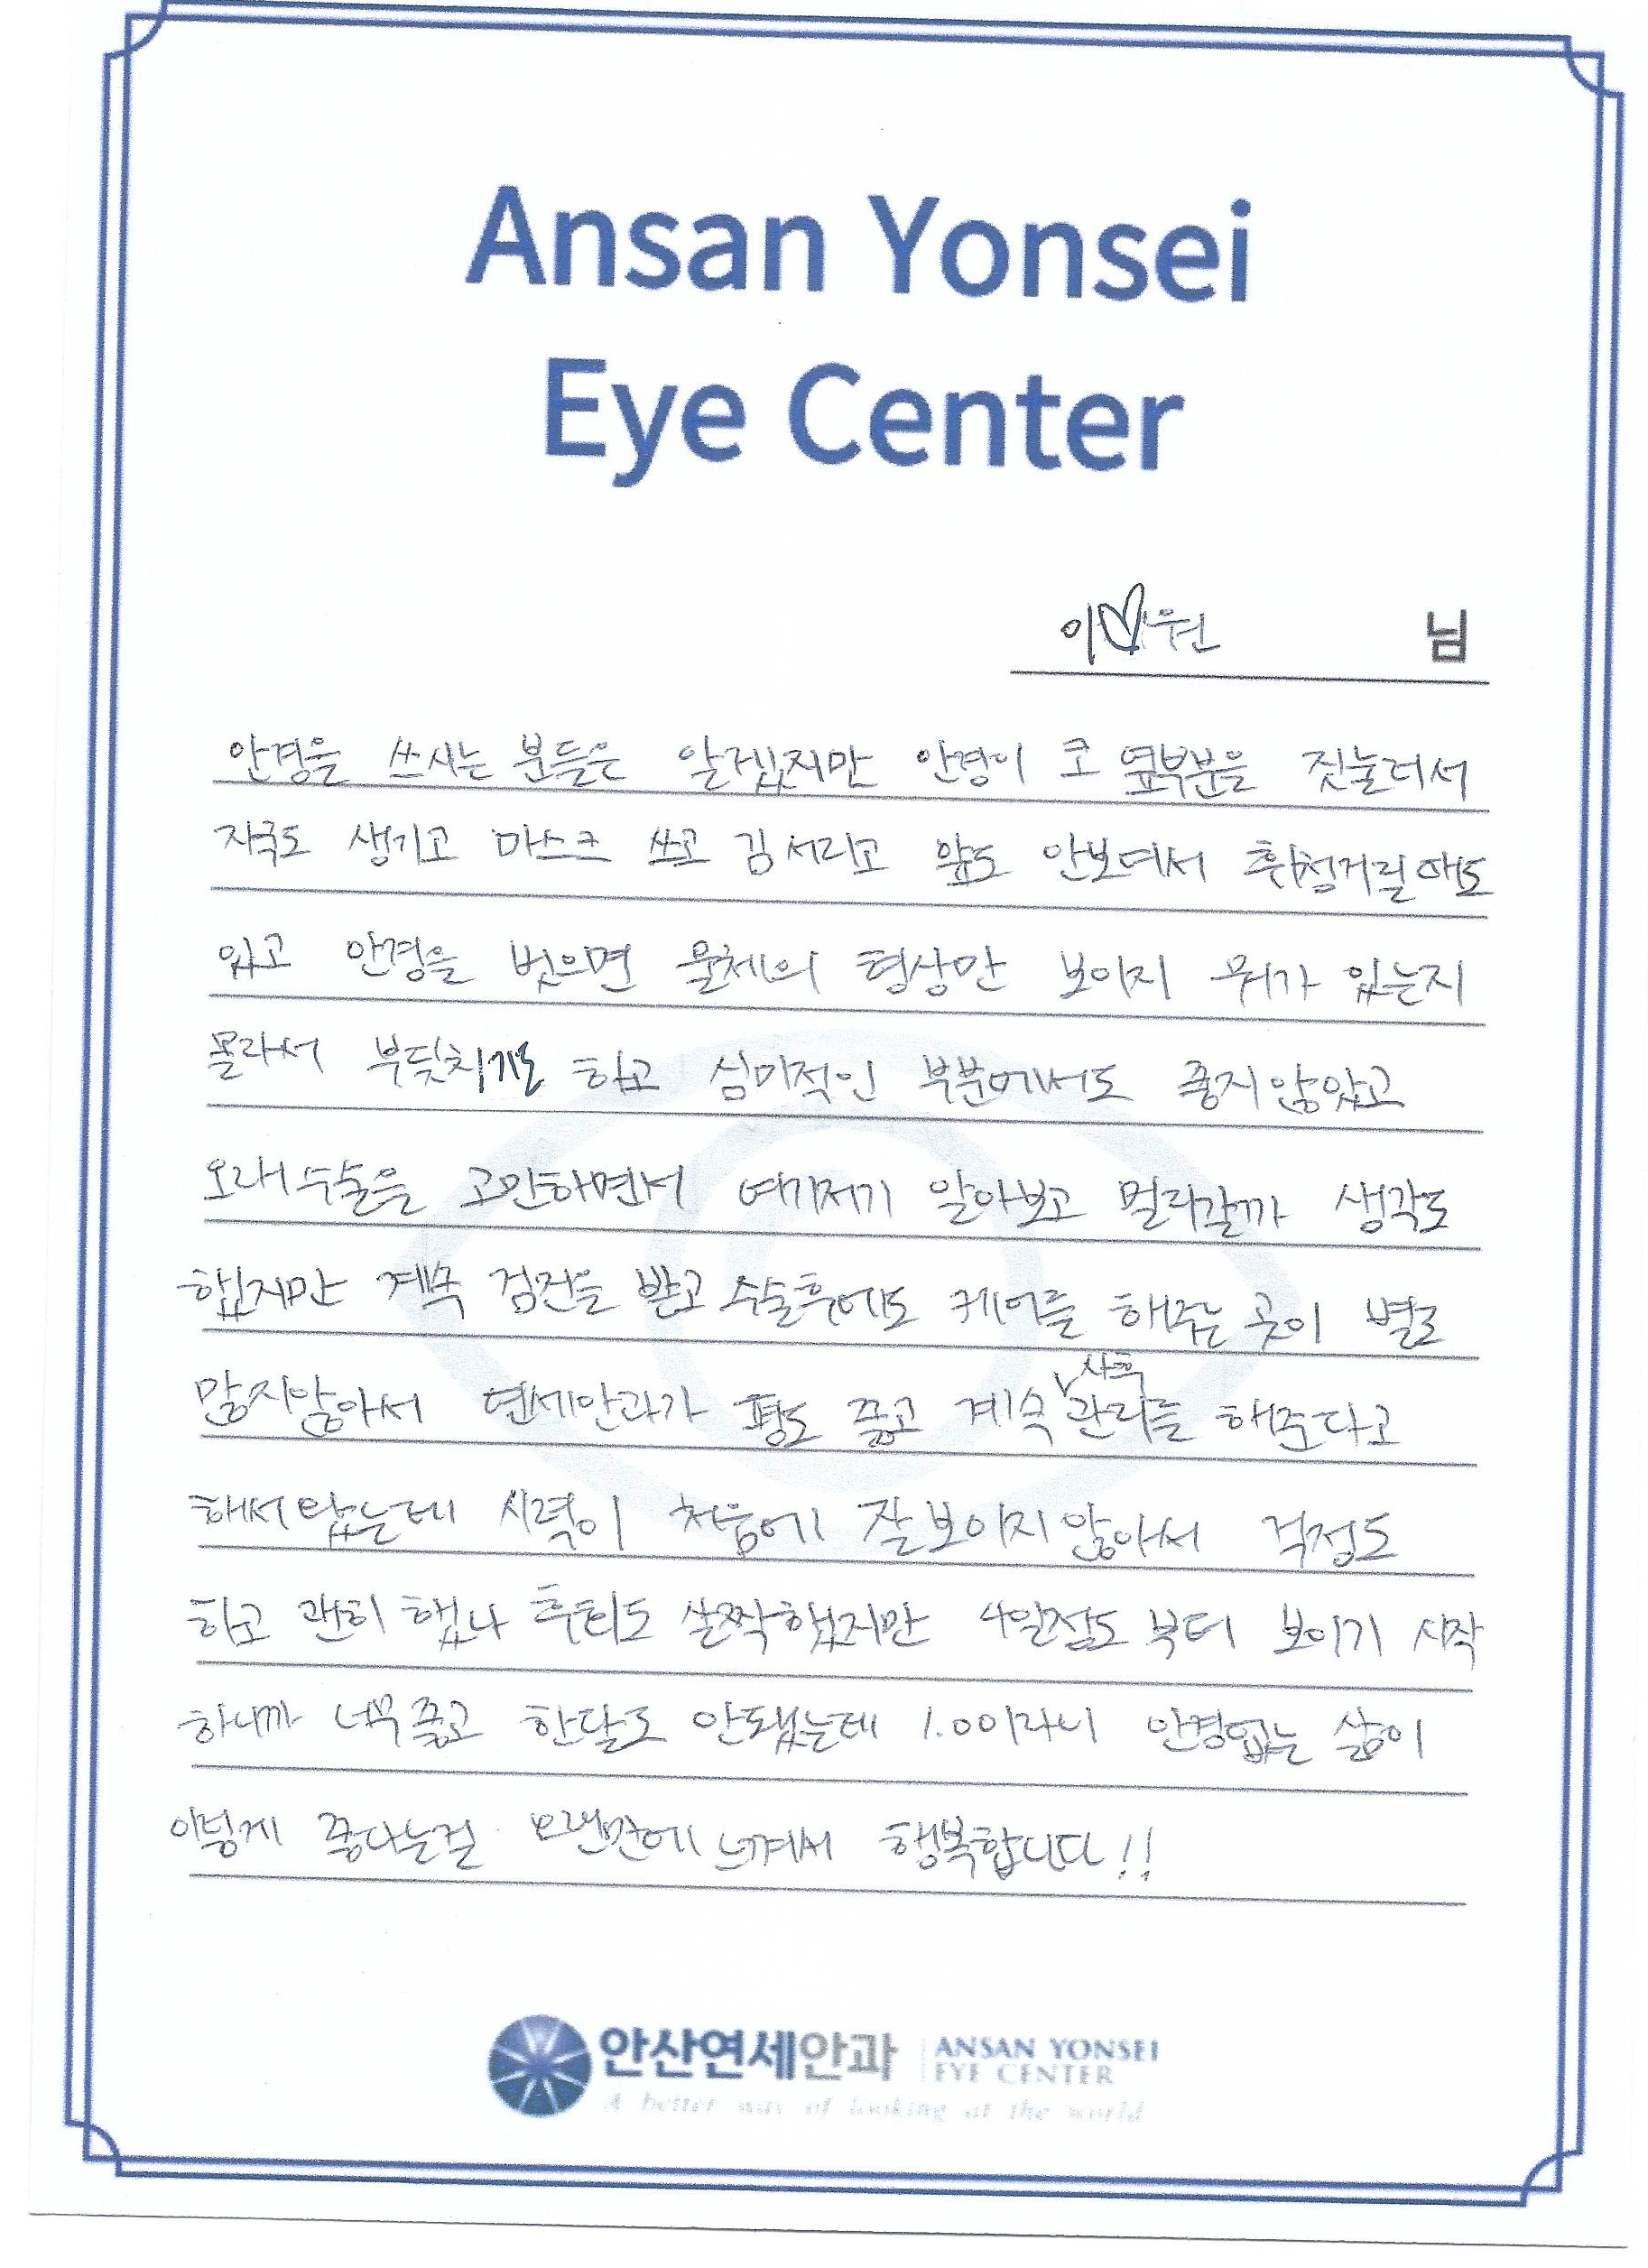 Ansan Yonsei
Eye Center
이♡원 님
안경을 쓰시는 분들은 알겠지만 안경이 코 옆부분을 짓눌려서
자국도 생기고 마스크 쓰고 김서리고 앞도 안보여서 휘청거릴때도
있고 안경을 벗으면 물체의 형상만 보이지 뭐가 있는지
몰라서 부딪치기도 하고 심미적인 부분에서도 좋지않았고
오래수술을 고민하면서 여기저기 알아보고 멀리갈까 생각도
했지만 계속 검진을 받고 수술후에도 케어를 해주는 곳이 별로
많지않아서 연세안과가 평도 좋고 계속 사후 관리를 해준다고
해서 왔는데 시력이 처음에 잘보이지않아서 걱정도
하고 괜히 했나 후회도 살짝했지만 4일정도 부터 보이기 시작
하니까 너무좋고 한달도 안됐는데 1.0이라니 안경없는 삶이
이렇게 좋다는걸 오랜만에 느껴서 행복합니다!!
안산연세안과 ANSAN YONSEI
EYE CENTER
A better way of looking at the world